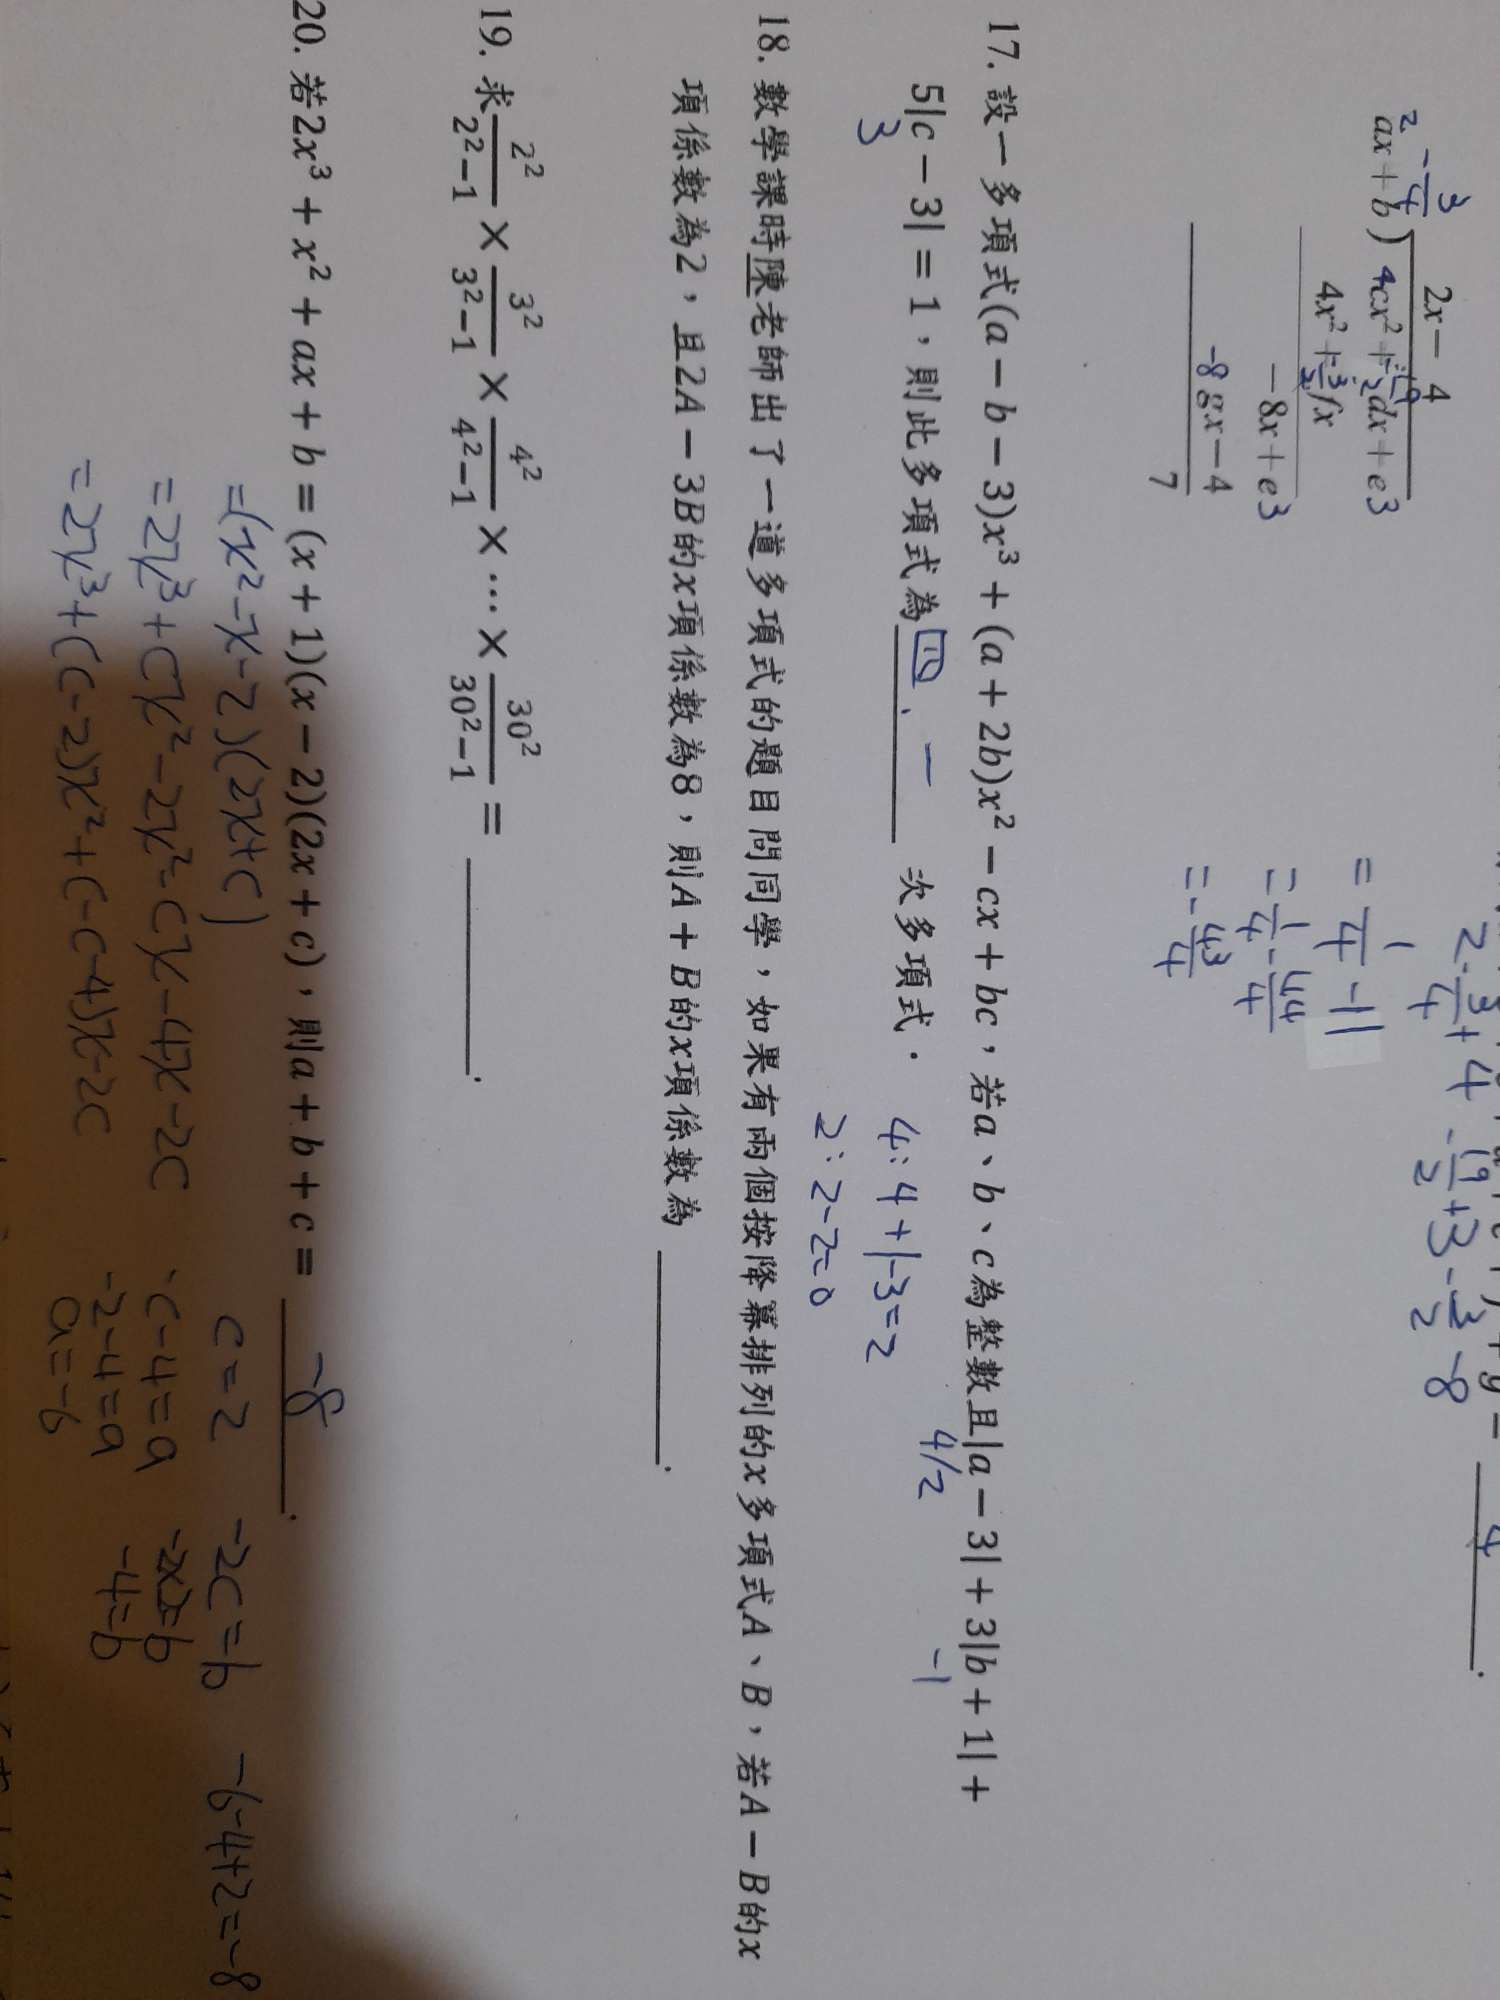 2x-4
ax+b)4cx²+-19/2dx+e3
2 -3/4
4x²+-3/2fx
-8x+e3
-8gx-4
7
2·-3/4+4-19/2+3-3/2-8
4
=1/4-11
=1/4-44/4
=-43/4
17. 設一多項式(a-b-3)x³+(a+2b)x²-cx+bc,若a、b、c為整數且|a-3|+3|b+1|+
4/2 -1
5|c-3|=1,則此多項式為 四、一 次多項式.
3
4:4+1-3=2
2:2-2=0
18. 數學課時陳老師出了一道多項式的題目問同學,如果有兩個按降冪排列的x多項式A、B,若A-B的x
項係數為2,且2A-3B的x項係數為8,則A+B的x項係數為 .
19. 求 2²/2²-1 × 3²/3²-1 × 4²/4²-1 ×…× 30²/30²-1 = .
20. 若2x³+x²+ax+b=(x+1)(x-2)(2x+c),則a+b+c= -8 .
=(x²-x-2)(2x+c) c=2 -2c=b -6-4+2=-8
=2x³+cx²-2x²-cx-4x-2c -c-4=a -2x2=b
=2x³+(c-2)x²+c-c-4)x-2c -2-4=a -4=b
a=-6